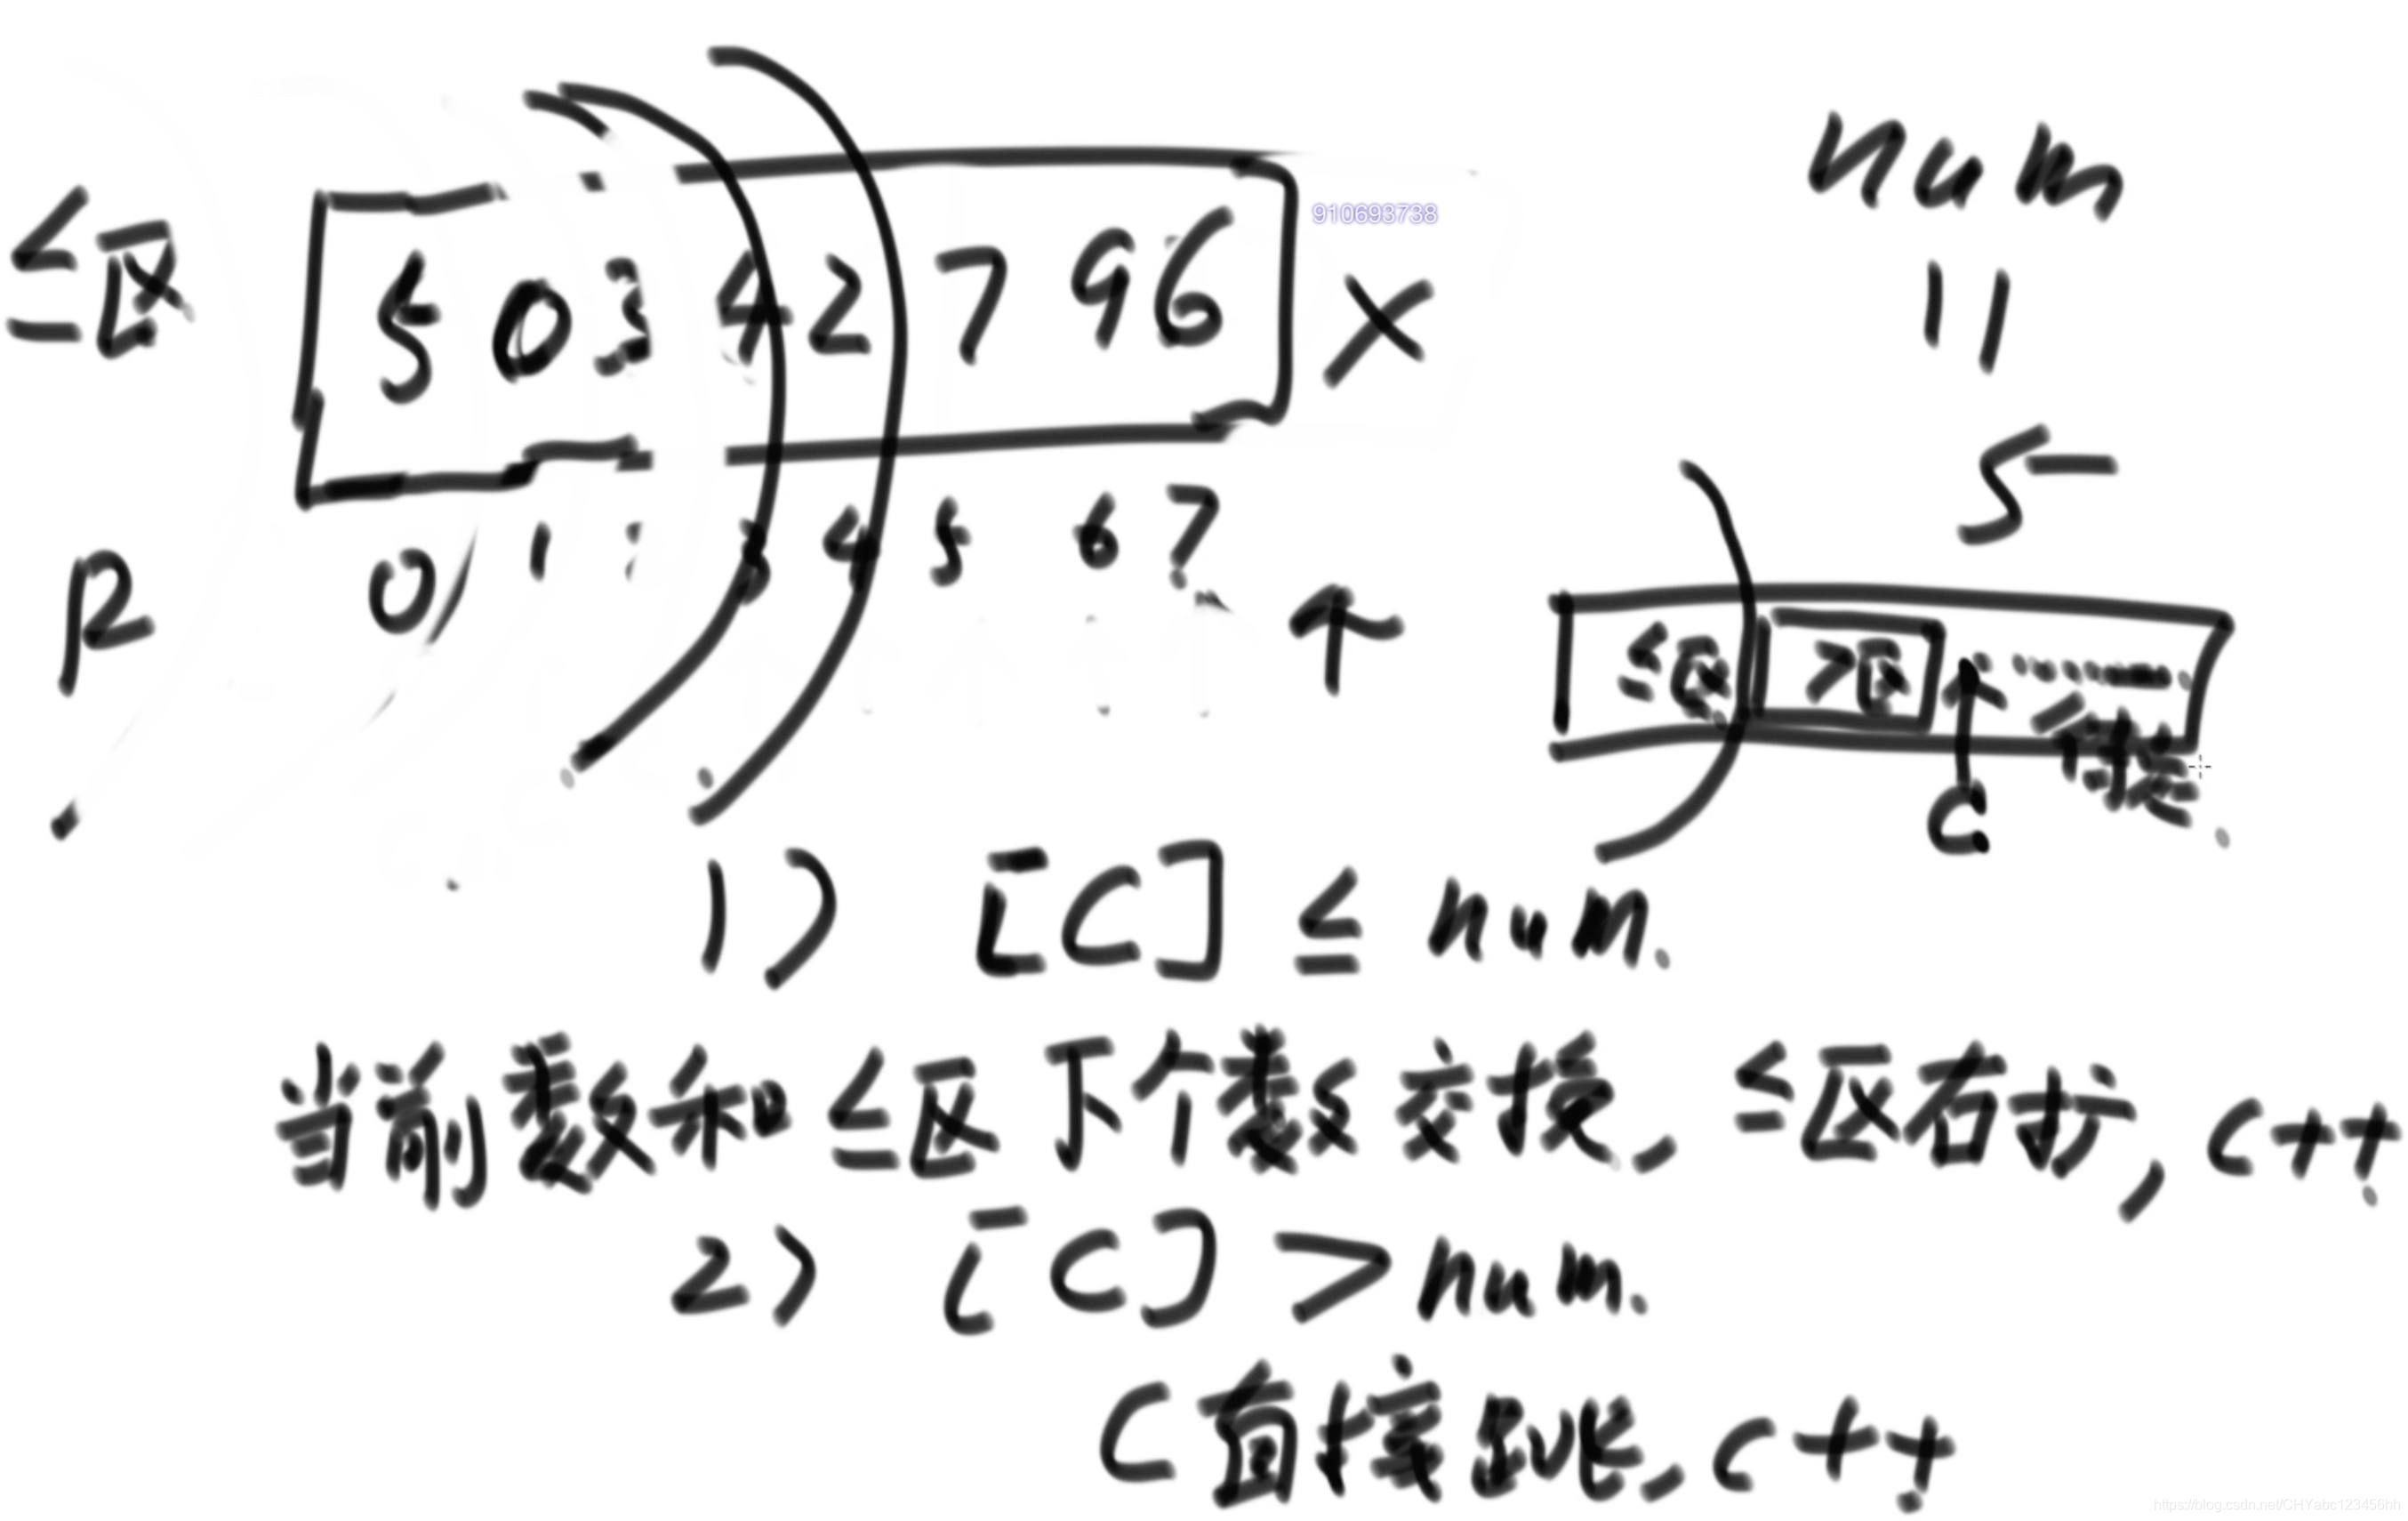 num
910693738
≤区 5 0 3 4 2 7 9 6 X
=
5
P 0 1 3 4 5 6 7
≤区 >区 ....... 待定
C
1) [C] ≤ num.
当前数和≤区下个数交换, ≤区右扩, C++
2) [C] > num.
C直接跳, C++
https://blog.csdn.net/CHYabc123456hh